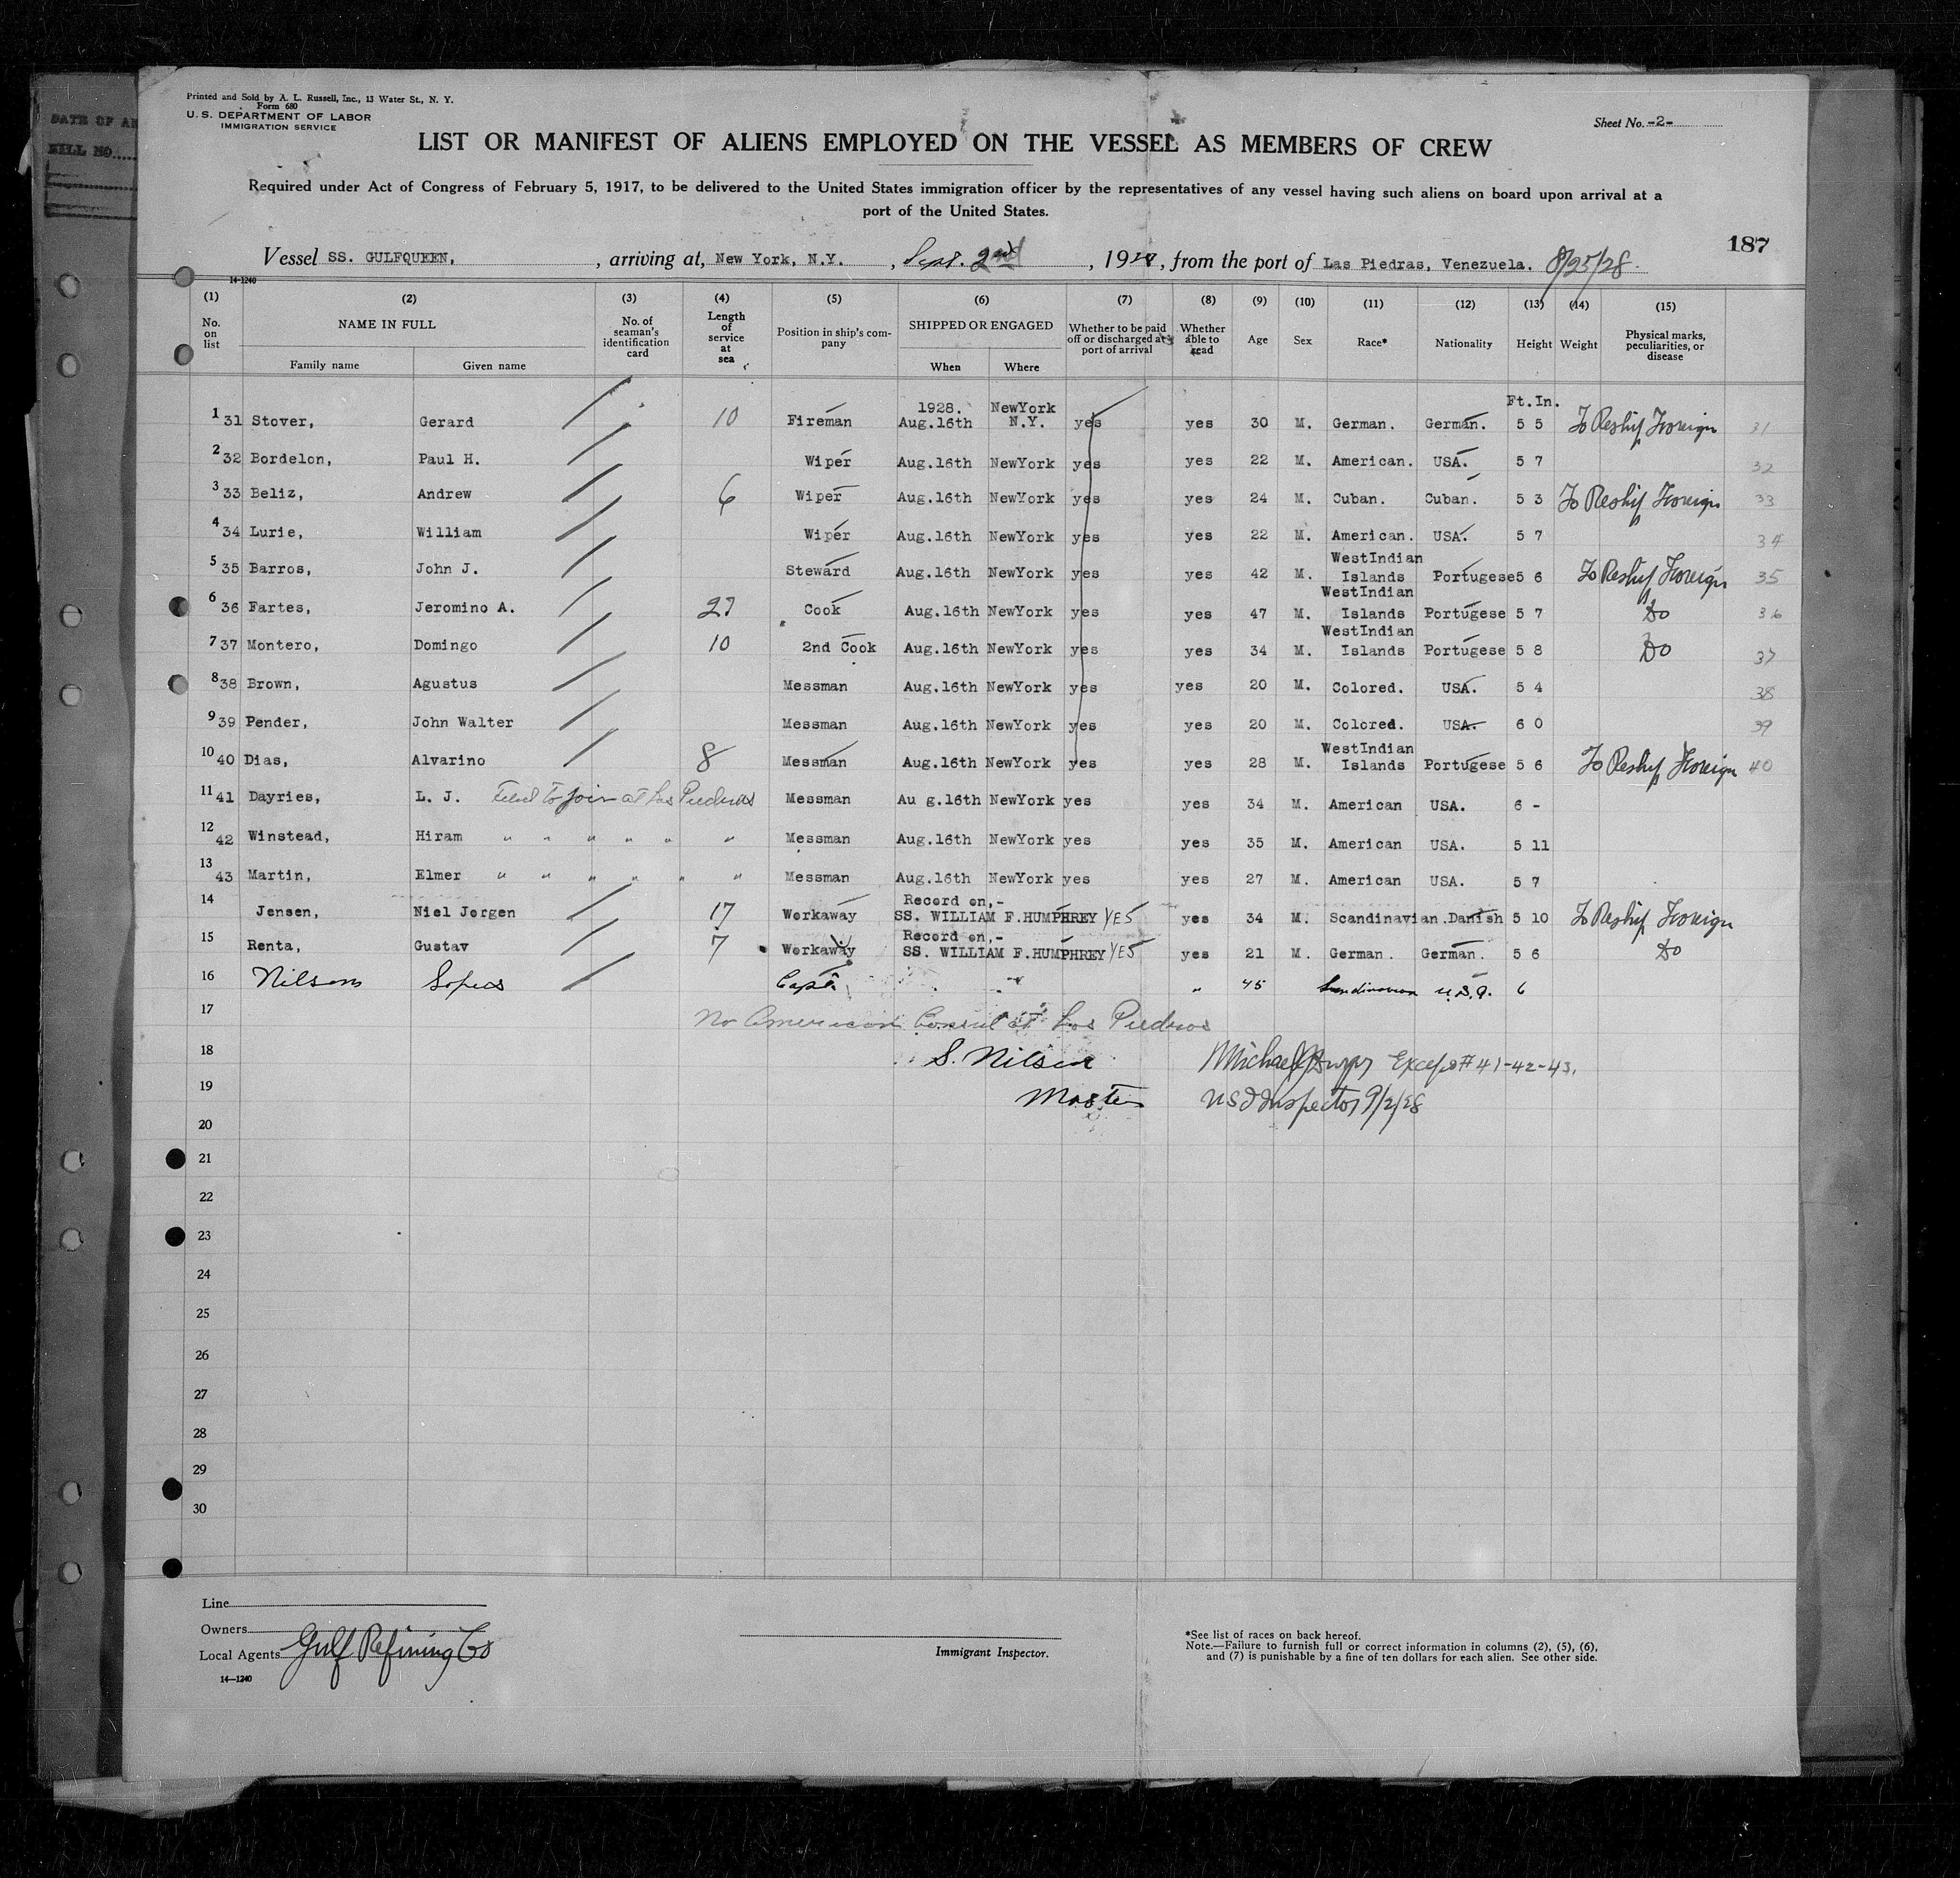 DATE OF AR
BILL NO.....
Printed and Sold by A. L. Russell, Inc., 13 Water St., N. Y.
Form 680
U. S. DEPARTMENT OF LABOR
IMMIGRATION SERVICE
Sheet No. -2-
LIST OR MANIFEST OF ALIENS EMPLOYED ON THE VESSEL AS MEMBERS OF CREW
Required under Act of Congress of February 5, 1917, to be delivered to the United States immigration officer by the representatives of any vessel having such aliens on board upon arrival at a
port of the United States.
187
Vessel SS. GULFQUEEN, , arriving at, New York, N.Y. , Sept. 2nd , 1928, from the port of Las Piedras, Venezuela. 8/25/28.
14-1240
(1) (2) (3) (4) (5) (6) (7) (8) (9) (10) (11) (12) (13) (14) (15)
No. on list NAME IN FULL Family name Given name No. of seaman's identification card Length of service at sea Position in ship's company SHIPPED OR ENGAGED When Where Whether to be paid off or discharged at port of arrival Whether able to read Age Sex Race* Nationality Height Weight Physical marks, peculiarities, or disease
1928. NewYork Ft.In.
1 31 Stover, Gerard 10 Fireman Aug.16th N.Y. yes yes 30 M. German. German. 5 5 To Reship Foreign 31
2 32 Bordelon, Paul H. Wiper Aug.16th NewYork yes yes 22 M. American. USA. 5 7 32
3 33 Beliz, Andrew 6 Wiper Aug.16th NewYork yes yes 24 M. Cuban. Cuban. 5 3 To Reship Foreign 33
4 34 Lurie, William Wiper Aug.16th NewYork yes yes 22 M. American. USA. 5 7 34
WestIndian
5 35 Barros, John J. Steward Aug.16th NewYork yes yes 42 M. Islands Portugese 5 6 To Reship Foreign 35
WestIndian
6 36 Fartes, Jeromino A. 27 Cook Aug.16th NewYork yes yes 47 M. Islands Portugese 5 7 Do 36
WestIndian
7 37 Montero, Domingo 10 2nd Cook Aug.16th NewYork yes yes 34 M. Islands Portugese 5 8 Do 37
8 38 Brown, Agustus Messman Aug.16th NewYork yes yes 20 M. Colored. USA. 5 4 38
9 39 Pender, John Walter Messman Aug.16th NewYork yes yes 20 M. Colored. USA. 6 0 39
WestIndian
10 40 Dias, Alvarino 8 Messman Aug.16th NewYork yes yes 28 M. Islands Portugese 5 6 To Reship Foreign 40
11 41 Dayries, L. J. Failed to join at Las Piedras Messman Au g.16th NewYork yes yes 34 M. American USA. 6 -
12 42 Winstead, Hiram " " " " " " Messman Aug.16th NewYork yes yes 35 M. American USA. 5 11
13 43 Martin, Elmer " " " " " " Messman Aug.16th NewYork yes yes 27 M. American USA. 5 7
Record on,-
14 Jensen, Niel Jorgen 17 Workaway SS. WILLIAM F.HUMPHREY YES yes 34 M. Scandinavian. Danish 5 10 To Reship Foreign
Record on,-
15 Renta, Gustav 7 Workaway SS. WILLIAM F.HUMPHREY YES yes 21 M. German. German. 5 6 Do
16 Nilsen Sofus Capt. " " 45 Scandinavian U.S.A. 6
17 No American Consul at Las Piedras
18 S. Nilsen Michael Except # 41-42-43.
19 Master US Inspector 9/2/28
20
21
22
23
24
25
26
27
28
29
30
Line
Owners
Local Agents Gulf Refining Co
14-1240
Immigrant Inspector.
*See list of races on back hereof.
Note.—Failure to furnish full or correct information in columns (2), (5), (6),
and (7) is punishable by a fine of ten dollars for each alien. See other side.